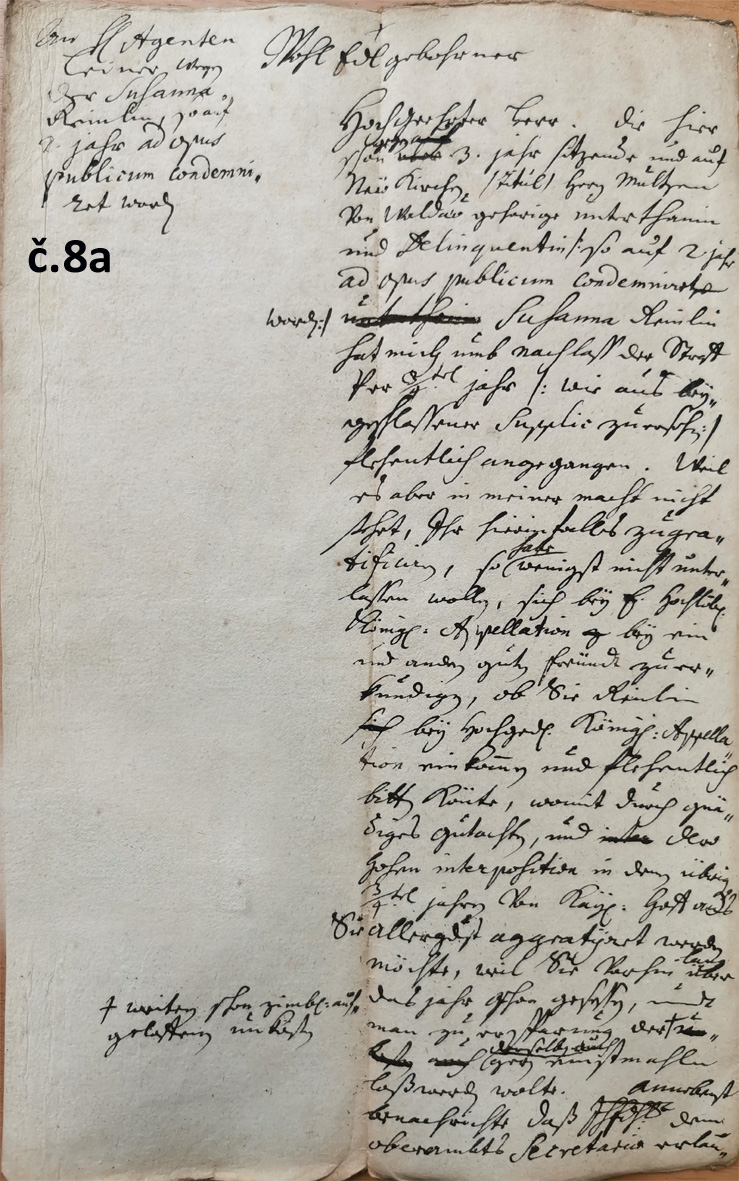 An H Agenten
Leiner wegen
der Susanna
Reinlin, so auf
2. jahr ad opus
publicum condemni,
ret worden
č.8a
Wohl Edlgebohrner
Hochgeehrter Herr. die hier
schon 3. jahr sitzende und auf
Neü Kirchen, /titul/ Herrn Mültzen
Von Waldaw gehörige unterthanin
und Delinquentin /: so auf 2 jahr
ad opus publicum condemniret
word:/ Susanna Reinlin
hat mich umb nachlass der Straff
Per jahr /: wie aus bey„
geschlossener Supplic zu ersehen:/
flehentlich angegangen. Weil
es aber in meiner macht nicht
stehet, Ihr hierinfalles zu gra„
tificiren, so habe wenigst nicht unter„
lassen wollen, sich bey E. Hochlöbl.
Königl: Appellation bey ein
und andern guten freünde zu er„
kündigen, ob Sie Reinlin
bey Hochged. Königl: Appella„
tion einkommen und flehentlich
bitten könte, womit durch gnä„
diges gutachten, und dero
hohen interposition in dem übrigen
3/4tel jahren Von Kayl: Hoff aus
Sie allergdst aggratyret werden
möchte, weil Sie Vorhin über
das jahr schon gesessen, undt
man zu ersparung der
† weiten schon zimbl: auf„
gelaffenen unkosten
derselben auch gern einstmahln
loß werden wolte. annebenst
benachrichte daß dem
oberambts Secretario